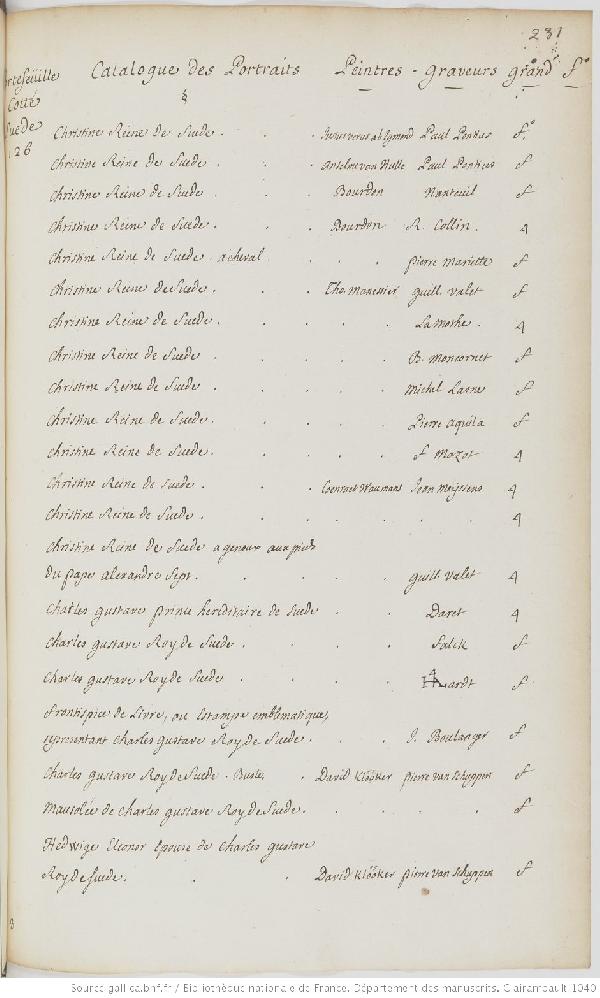 231
Portefeüille Catalogue des Portraits Peintres - graveurs grand f.º
Cotté
Suede
126
Christine Reine de Suede . . . Paul Pontius f.º
Christine Reine de Suede . . . Anselme van Hulle Paul Pontius f
Christine Reine de Suede . . . Bourdon Nanteuil f
Christine Reine de Suede . . . Bourdon R. Collin . 4
Christine Reine de Suede . a cheval . . . pierre mariette f
Christine Reine de Suede . . . guill. valet f
Christine Reine de Suede . . . . . . La mothe . 4
Christine Reine de Suede . . . . . . B. moncornet f
Christine Reine de Suede . . . . . . michel Lasne f
Christine Reine de Suede . . . . . . Pierre aquila f
Christine Reine de Suede . . . . . . f mazot 4
Christine Reine de Suede . . . Coenraet Waumans Jean Meyssens 4
Christine Reine de Suede . . . . . . . . 4
Christine Reine de Suede a genoux aux pieds
du pape alexandre Sept . . . . . guill valet 4
Charles gustave prince hereditaire de Suede . . Daret 4
Charles gustave Roy de Suede . . . . Falck f
Charles gustave Roy de Suede . . . . f
Frontispice de Livre, ou Estampe emblematique,
representant Charles gustave Roy de Suede . . . J. Boulanger f
Charles gustave Roy de Suede . Buste, . David Klöoker pierre van schuppen f
Mausolée de Charles gustave Roy de Suede . . . . . f
Hedwige Eleonor Epouse de Charles gustave
Roy de Suede . . . David Klöoker pierre van schuppen f
Source gallica.bnf.fr / Bibliothèque nationale de France. Département des manuscrits. Clairambault 1040